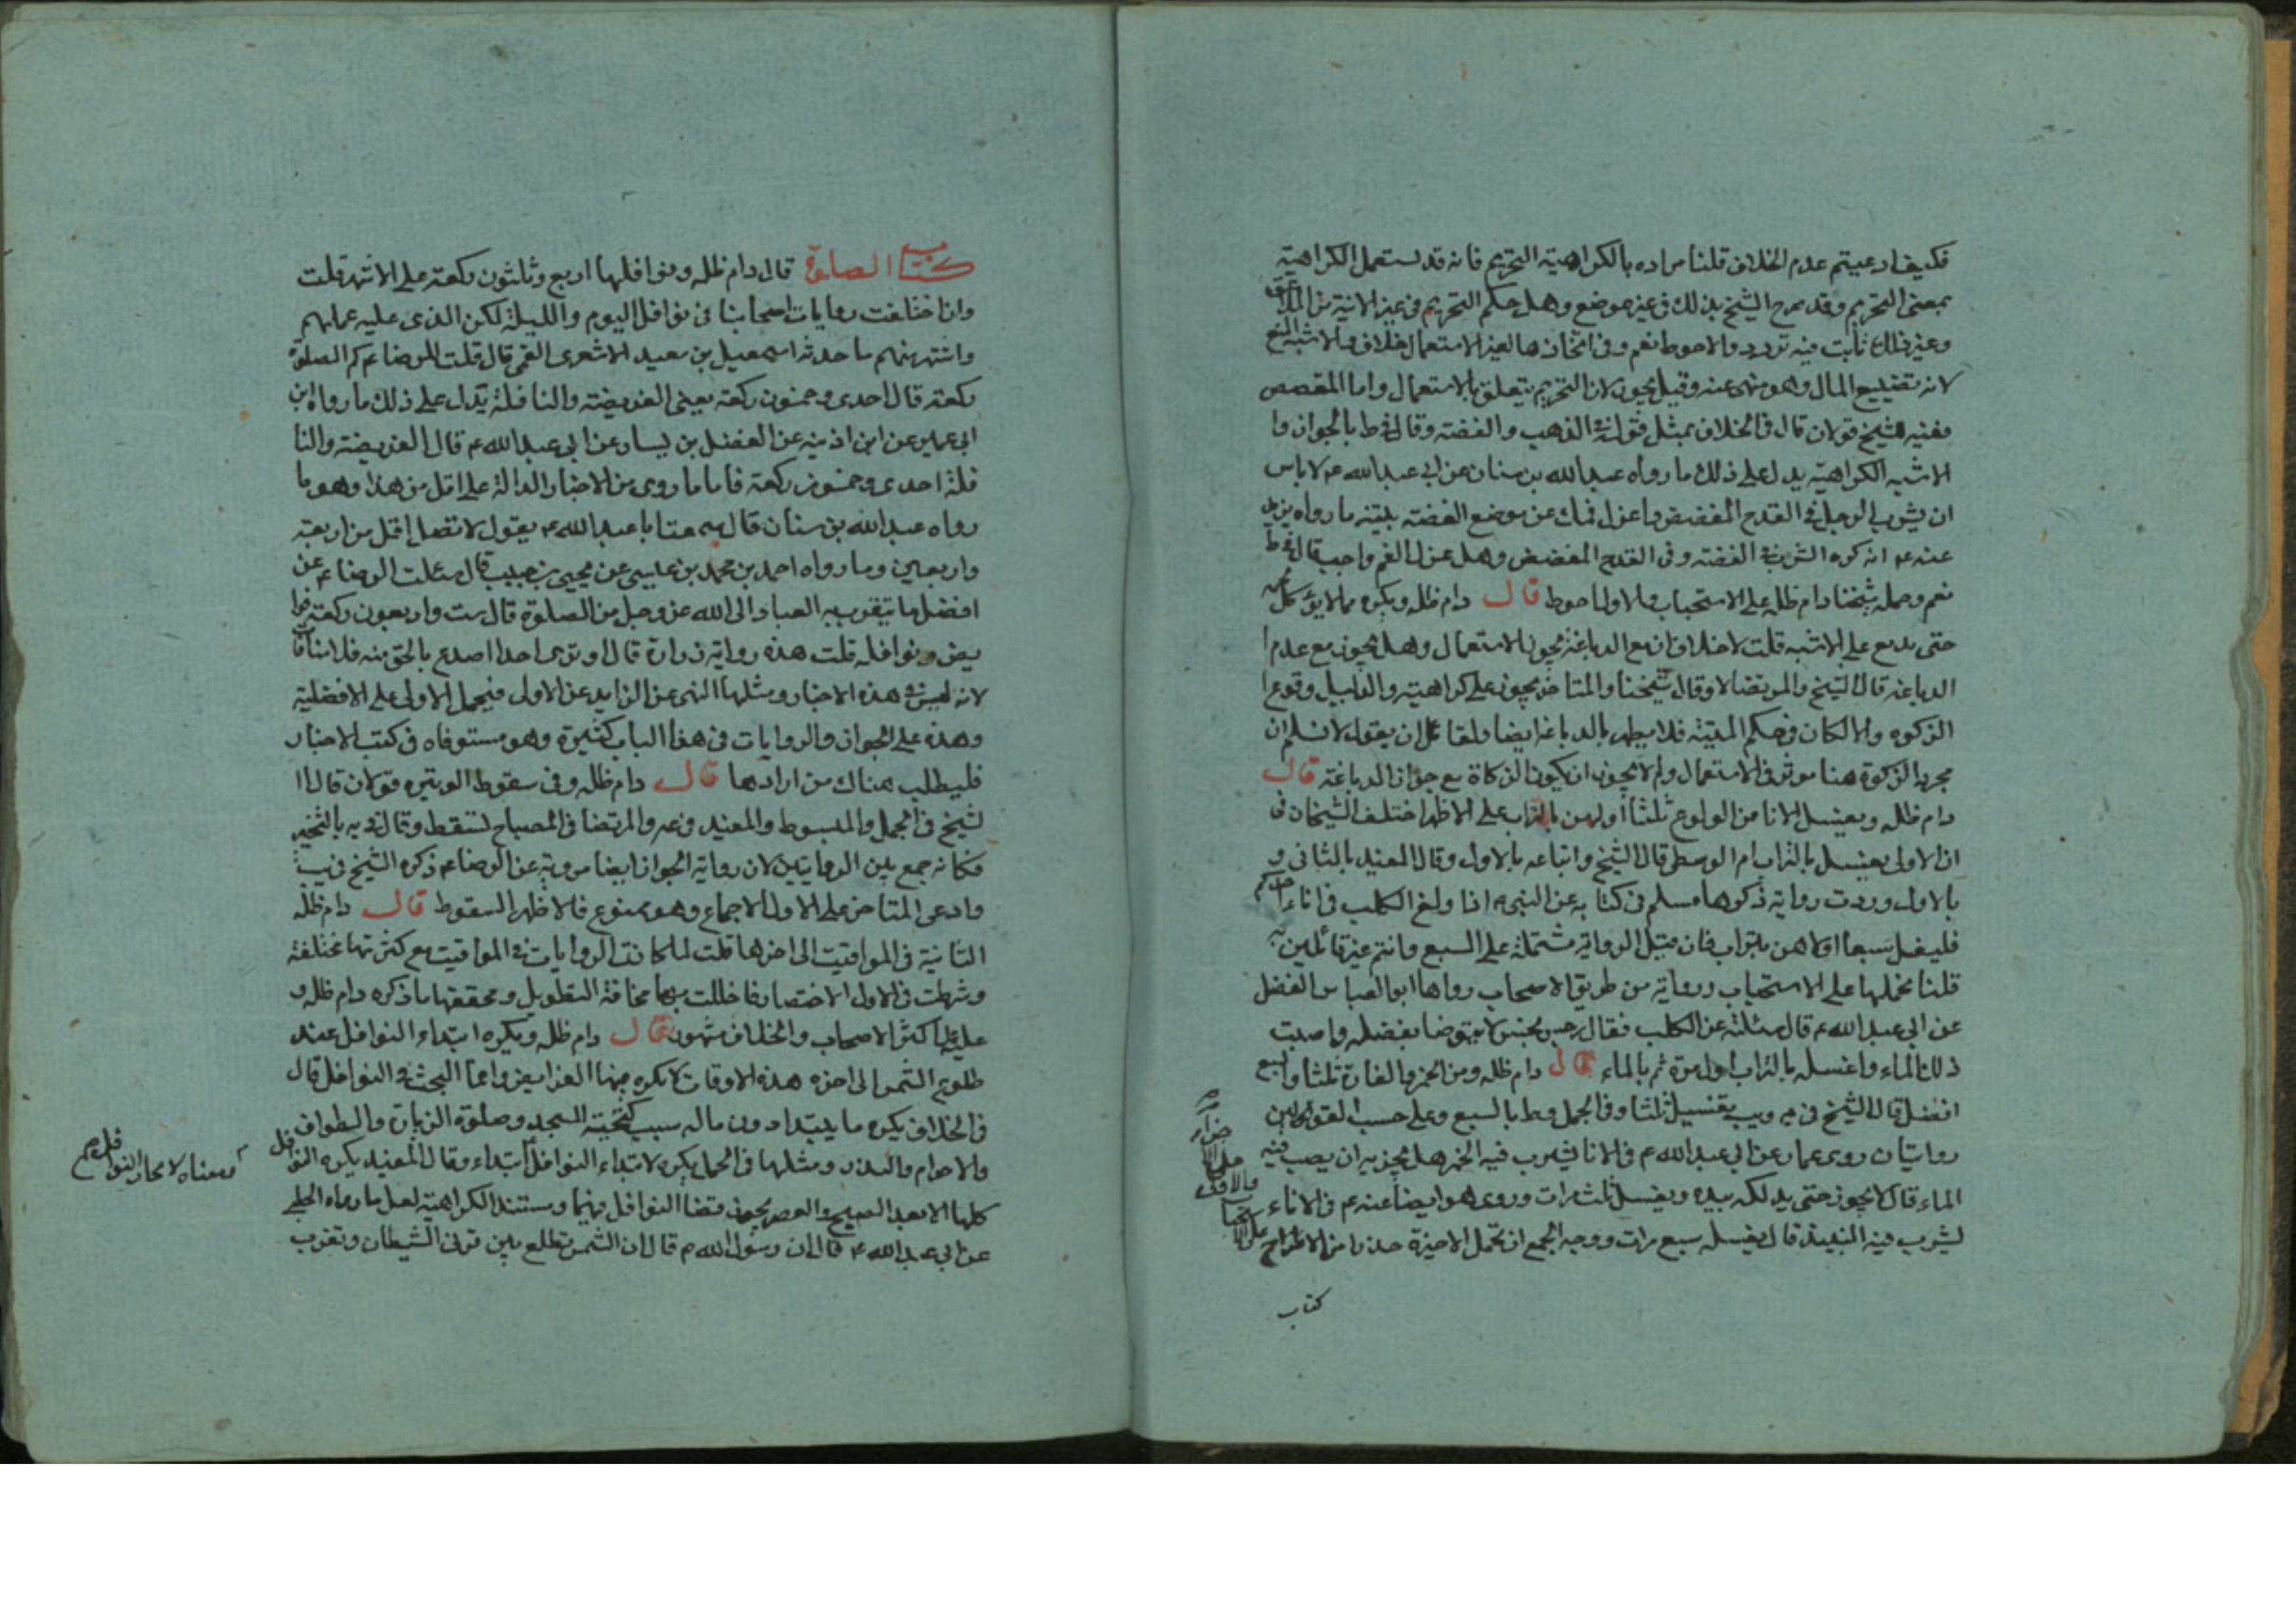 فكيف ادعيتم عدم الخلاف قلنا مراده بالكراهية التحريم فانه قد يستعمل الكراهية
بمعنى التحريم وقد صرح الشيخ بذلك في غير موضع وهل حكم التحريم في غير الانية من
وغير ذلك ثابت فيه تردد والاحوط نعم وفي اتخاذها لغير الاستعمال خلاف والاشبه المنع
لانه تضييع المال وهو منهى عنه وقيل يجوز لان التحريم يتعلق بالاستعمال واما المفضض
ففيه للشيخ قولان قال في الخلاف بمثل قوله في الذهب والفضة وقال في ط بالجواز وا
الاشبه الكراهية يدل على ذلك ما رواه عبد الله بن سنان عن ابي عبد الله ع لا باس
ان يشرب الرجل في القدح المفضض واعزل فمك عن موضع الفضة بينه ما رواه بريد
عنه ع انه كره الشرب في الفضة وفي القدح المفضض وهل عزل الفم واجب قال في ط
نعم وحمله شيخنا دام ظله على الاستحباب والاول احوط قال دام ظله ويكره مما لا يؤكل لحمه
حتى يدبغ على الاشبه قلت لا خلاف ان مع الدباغة يجوز الاستعمال وهل يجوز مع عدم ا
الدباغة قال الشيخ والمرتضى لا وقال شيخنا والمتاخر يجوز على كراهية والدليل وقوع ا
الزكوة والا لكان في حكم الميتة فلا يطهر بالدباغ ايضا ولقائل ان يقول لا نسلم ان
مجرد الزكوة هنا موثر في الاستعمال ولم لا يجوز ان يكون الزكاة مع جواز الدباغة قال
دام ظله ويغسل الانا من الولوغ ثلثا اولهن بالتراب على الاظهر اختلف الشيخان في
ان الاولى يغسل بالتراب ام الوسطى قال الشيخ واتباعه بالاول وقال المفيد بالثاني و
بالاول وردت رواية ذكرها مسلم في كتابه عن النبي ص اذا ولغ الكلب في اناء احدكم
فليغسل سبعا اولاهن بالتراب فان قيل الرواية مشتملة على السبع وانتم غير قائلين به
قلنا نحملها على الاستحباب ورواية من طريق الاصحاب رواها ابو العباس الفضل
عن ابي عبد الله ع قال سئلته عن الكلب فقال رجس نجس لا يتوضا بفضله واصبب
ذلك الماء واغسله بالتراب اول مرة ثم بالماء قال دام ظله ومن الخمر والفارة ثلثا والسبع
افضل قال الشيخ في يه ويب يغسل ثلثا وفي الجمل وط بالسبع وعلى حسب القولين
روايتان روى عمار عن ابي عبد الله ع في الانا يشرب فيه الخمر هل يجزيه ان يصب فيه
الماء قال لا يجوز حتى يدلكه بيده ويغسل ثلث مرات وروى هو ايضا عنه ع في الاناء
يشرب فيه النبيذ قال يغسله سبع مرات ووجه الجمع ان تحمل الاخيرة حذرا من الاطراح
على
والاولى
كتاب
كتاب الصلوة قال دام ظله ونوافلها اربع وثلثون ركعة على الاشهر قلت
وان اختلفت روايات اصحابنا في نوافل اليوم والليلة لكن الذى عليه عملهم
واشتهر بينهم ما حدثه اسمعيل بن سعيد الاشعرى القمى قال قلت للرضا ع كم الصلوة
ركعة قال احدى وخمسون ركعة يعنى الفريضة والنافلة يدل على ذلك ما رواه ابن
ابى عمير عن ابن اذينه عن الفضل بن يسار عن ابي عبد الله ع قال الفريضة والنا
فلة احدى وخمسون ركعة فاما ما روى من الاخبار الدالة على اقل من هذا وهو ما
رواه عبد الله بن سنان قال سمعت ابا عبد الله ع يقول لا تصل اقل من اربعة
واربعين وما رواه احمد بن محمد بن عيسى عن يحيى بن حبيب قال سئلت الرضا ع عن
افضل ما يتقرب به العباد الى الله عز وجل من الصلوة قال ست واربعون ركعة فرا
يض ونوافله قلت هذه رواية زرارة قال او ترى احدا اصدع بالحق منه فلا منافاة
لانه ليس في هذه الاخبار ومثلها النهى عن الزايد عن الاول فيحمل الاولى على الافضلية
وهذه على الجواز والروايات في هذا الباب كثيرة وهو مستوفاه في كتب الاخبار
فليطلب هناك من ارادها قال دام ظله وفي سقوط الوتيره قولان قال ا
لشيخ في الجمل والمبسوط والمفيد وغيره والمرتضى في المصباح تسقط وقال في يه بالتخيير
فكانه جمع بين الروايتين لان رواية الجواز ايضا مروية عن الرضا ع ذكره الشيخ في يب
وادعى المتاخر على الاول الاجماع وهو ممنوع فالاظهر السقوط قال دام ظله
الثانية في المواقيت الى اخرها قلت لما كانت الروايات في المواقيت مع كثرتها مختلفة
وشرطت في الاول الاختصار فاخللت بها مخافة التطويل ومحققها ما ذكره دام ظله و
عليه اكثر الاصحاب والخلاف مشهور قال دام ظله ويكره ابتداء النوافل عند
طلوع الشمس الى اخره هذه الاوقات لا يكره فيها الفرايض وانما البحث في النوافل قال
في الخلاف يكره ما يبتدا دون ماله سبب كتحية المسجد وصلوة الزيارة والطواف
والاحرام والنذر ومثلها في الجمل يكره لابتداء النوافل ابتداء وقال المفيد يكره النوافل
كلها الا بعد الصبح والعصر يجوز قضا النوافل فيهما ومستند الكراهية لعل ما رواه الحلبي
عن ابي عبد الله ع قال ان رسول الله ص قال ان الشمس تطلع بين قرنى الشيطان وتغرب